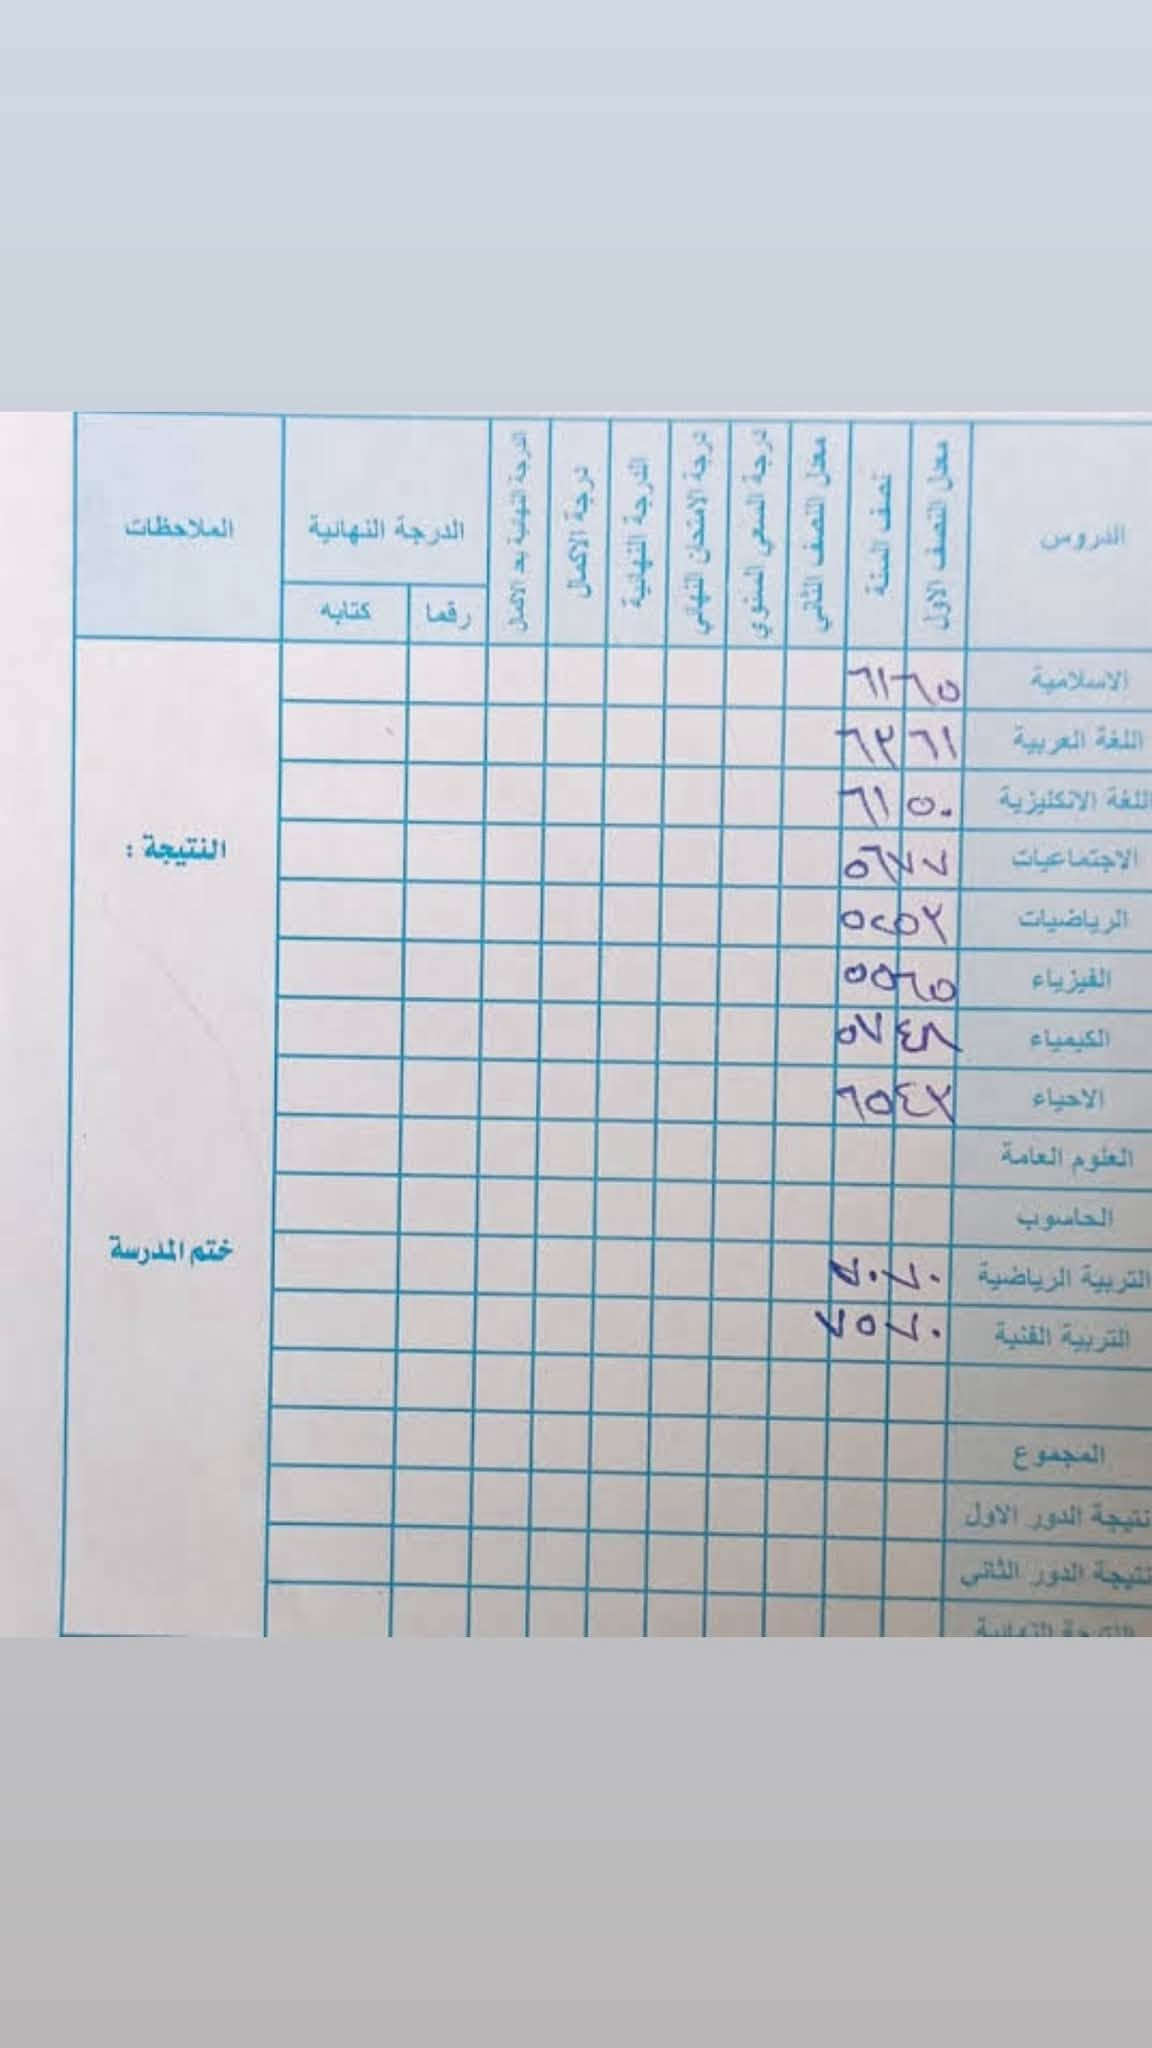 الدروس معدل النصف الاول نصف السنة معدل النصف الثاني درجة السعي السنوي درجة الامتحان النهائي الدرجة النهائية درجة الاكمال الدرجة النهائية بعد الاكمال الدرجة النهائية الملاحظات
رقما كتابه
الاسلامية ٦٥ ٦١
اللغة العربية ٦١ ٦٣
اللغة الانكليزية ٥٠ ٦١
الاجتماعيات ٧٧ ٥٦
النتيجة :
الرياضيات ٥٢ ٥٢
الفيزياء ٦٥ ٥٥
الكيمياء ٤٨ ٥٧
الاحياء ٤٢ ٦٥
العلوم العامة
الحاسوب
ختم المدرسة
التربية الرياضية ٧٠ ٨٠
التربية الفنية ٧٠ ٧٥
المجموع
نتيجة الدور الاول
نتيجة الدور الثاني
النتيجة النهائية